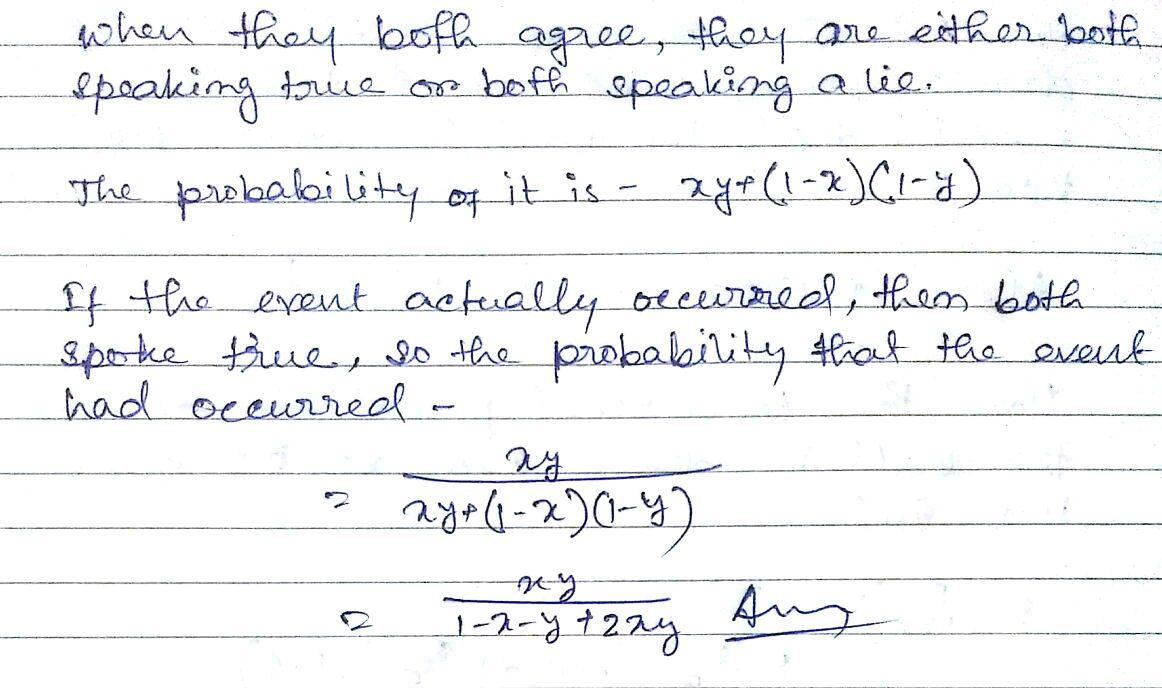 when they both agree, they are either both
speaking true or both speaking a lie.
The probability of it is - xy+(1-x)(1-y)
If the event actually occurred, then both
spoke true, so the probability that the event
had occurred -
= xy / xy+(1-x)(1-y)
= xy / 1-x-y+2xy Ans